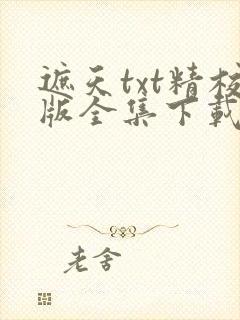 遮天txt精校
版全集下载
老舍